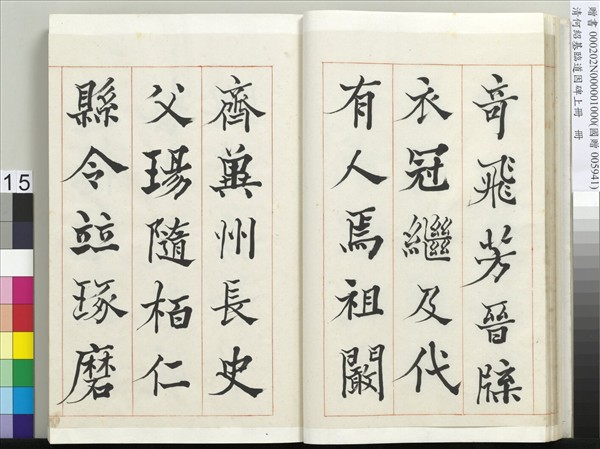 奇飛芳晉牒
衣冠繼及代
有人焉祖闞
齊冀州長史
父瑒隨柏仁
縣令竝琢磨
贈書 000202N000001000(國贈 005941)
清何紹基臨道因碑上冊 冊
15